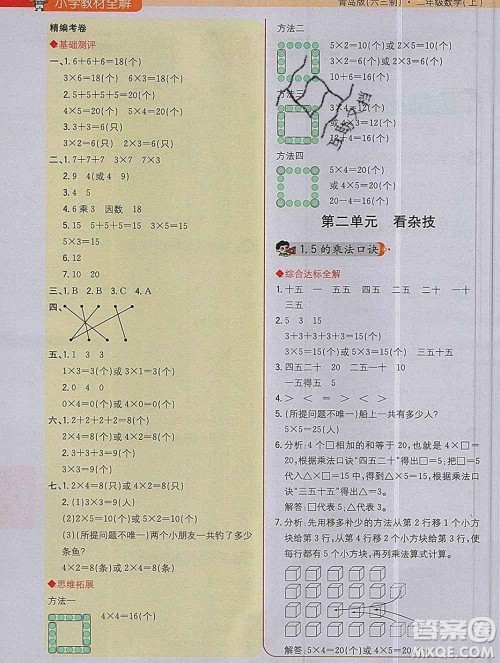 小学教材全解
青岛版(六三制)·二年级数学(上)
精编考卷
◆基础测评
一、1.6+6+6=18(个)
3×6=18(个)或6×3=18(个)
2.5+5+5+5=20(个)
4×5=20(个)或5×4=20(个)
3.3+3=6(只)
3×2=6(只)或2×3=6(只)
二、1.7+7+7 3×7 7×3
2.9(或4 9)
3.4 5
4.6乘3 因数 18
5.15 5+5+5=15(个)
5×3=15(个)
6.12
7.10 20
三、1.B 2.B 3.A 4.C
四、
五、1.1 3 3
1×3=3(个)或3×1=3(个)
2.4 0
4×0=0(个)或0×4=0(个)
六、1.2×2=4(个)
2.2×4=8(个)
3.3×3=9(个)
七、1.2×4=8(只)或4×2=8(只)
2.(1)3×3=9(人)
(2)2×5=10(个)或5×2=10(个)
(3)(所提问题不唯一)两个小朋友一共钓了多少
条鱼?
4×2=8(条)或2×4=8(条)
◆思维拓展
方法一
4×4=16(个)
方法二
5×2=10(个)或2×5=10(个)
3×2=6(个)或2×3=6(个)
10+6=16(个)
方法三
或3×4=12(个)
12+4=16(个)
方法四
5×4=20(个)
或4×5=20(个)
20-4=16(个)
第二单元 看杂技
1.5的乘法口诀
◆综合达标全解
1.十五 一 五 五四 二 二 五 一十 一
三 五
2.5 3 15
3+3+3+3+3=15(个)
3×5=15(个)或5×3=15(个) 三五十五
3.四五二十 20 二五一十 10
一五得五 5
5.(所提问题不唯一)船上一共有多少人?
5×5=25(人)
6.分析:4个□相加的和等于20,也就是4×□=
20,根据乘法口诀“四五二十”得出□=5,把□=5
代入△×□=15得出△×5=15,根据乘法口诀
“三五十五”得出△=3。
解答:□代表5,△代表3。
7.分析:先用移多补少的方法从第2行移1个小方
块给第3行,从第4行移2个小方块给第1行,
使每行都有5个小方块,再列乘法算式计算。
解答:5×4=20(个)或4×5=20(个)
答案圈
MXQE.COM